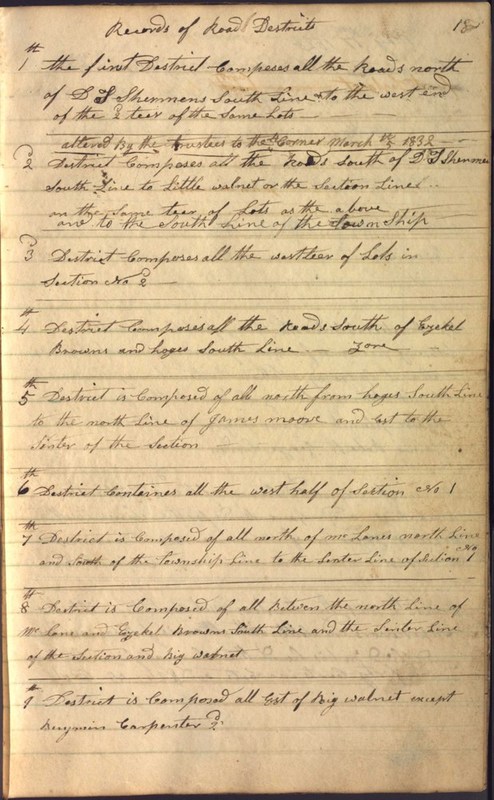 Records of Road Districts 18
1th the first District Composes all the Roads north
of D S Shemmens South Line & to the west end
of the 2d teer of the Same Lots
altered By the trustees to the Corner March 1832
2d District Composes all the Roads South of D S Shemmens
South Line to Little walnut or the Section Line
on the Same teer of Lots as the above
and to the South Line of the Town Ship
3d District Composes all the west teer of Lots in
Section No 2
4th District Composes all the Roads South of Ezekel
Browns and hoges South Line
5th District is Composed of all north from hoges South Line
to the north Line of James moore and Est to the
Senter of the Section
6th District Containes all the west half of Section No 1
7th District is Composed of all north of mc Lanes north Line
and South of the township Line to the Senter Line of Section No 1
8th District is Composed of all Between the north Line of
Mc Lane and Ezekel Browns South Line and the Senter Line
of the Section and Big walnut
9th District is Composed all Est of Big walnut except
Benjmin Carpenter 2d